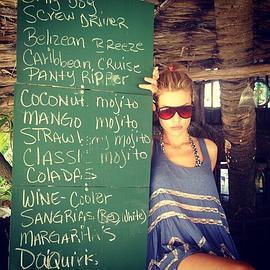 SCREW DRIVER
Belizean Breeze
Caribbean Cruise
PANTY Ripper
COCONUT mojito
MANGO mojito
mojito
CLASSI mojito
COLADAS
WINE-Cooler
SANGRIAS (RED, White)
MARGARITA'S
DaQuiris